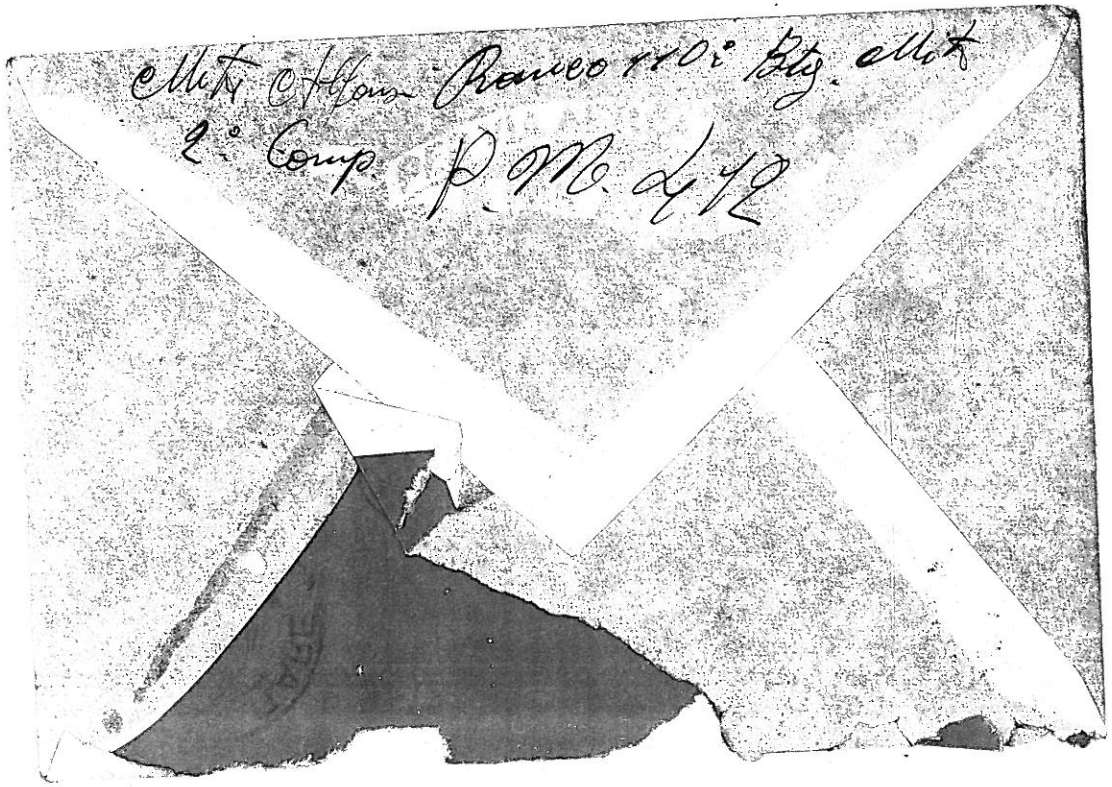 Mitr Alfonso Romeo 110° Btg. Mitr
2° Comp. P.M. 412